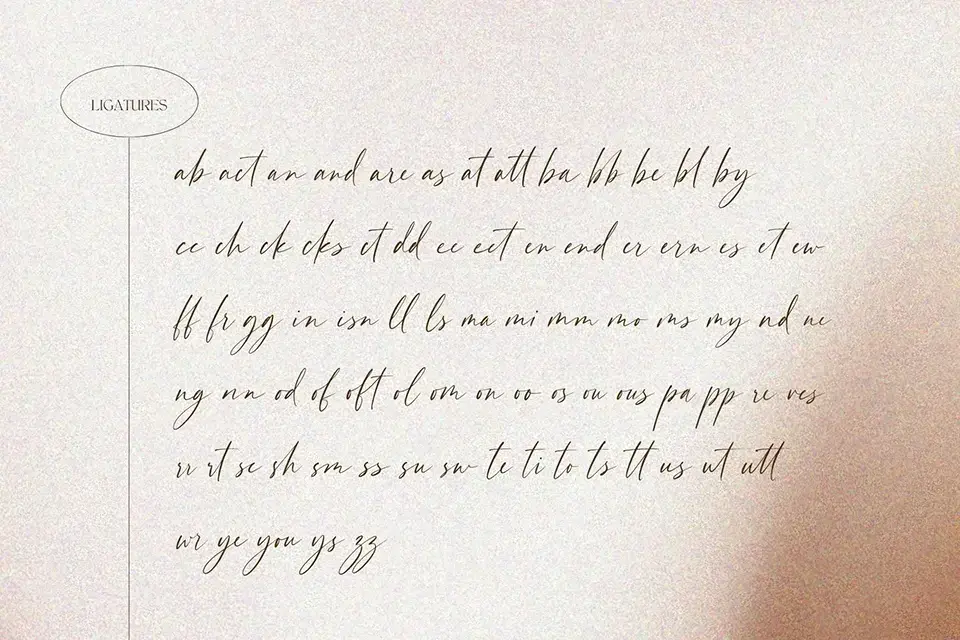 LIGATURES
ab act an and are as at att ba bb be bl by
cc ch ck cks ct dd ee eet en end er ern es et ew
ff fr gg in isn ll ls ma mi mm mo ms my nd ne
ng nn od of oft ol om on oo os ou ous pa pp re res
rr rt se sh sm ss su sw te ti to ts tt us ut utt
wr ye you ys zz